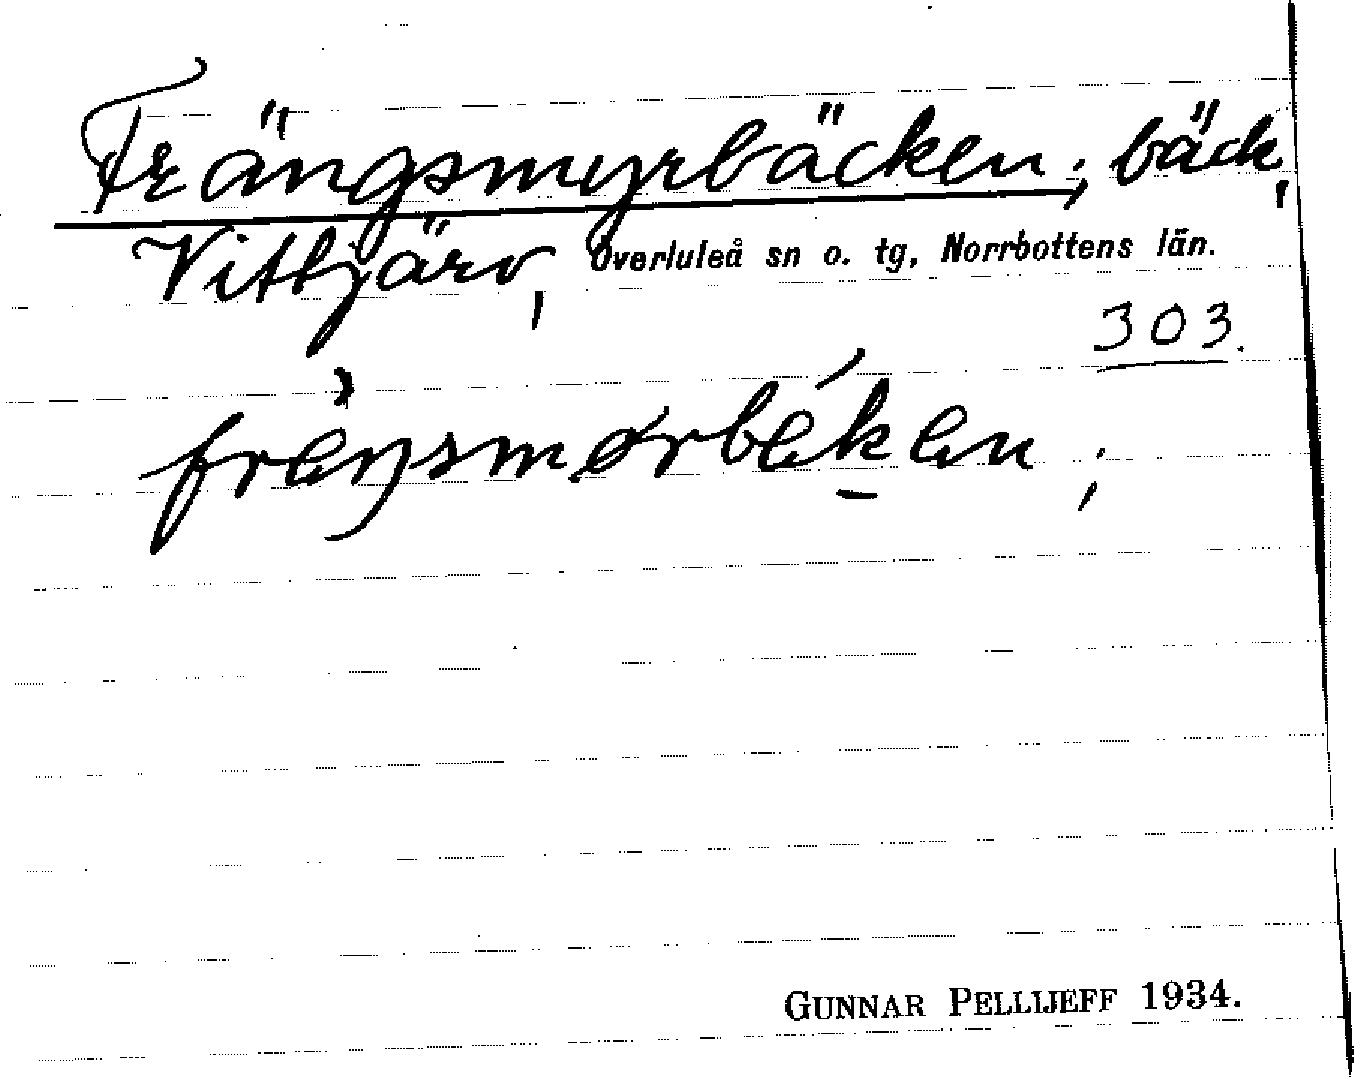 Frängsmyrbäcken; bäck,
Vittjärv, Överluleå sn o. tg, Norrbottens län.
303.
GUNNAR PELLIJEFF 1934.